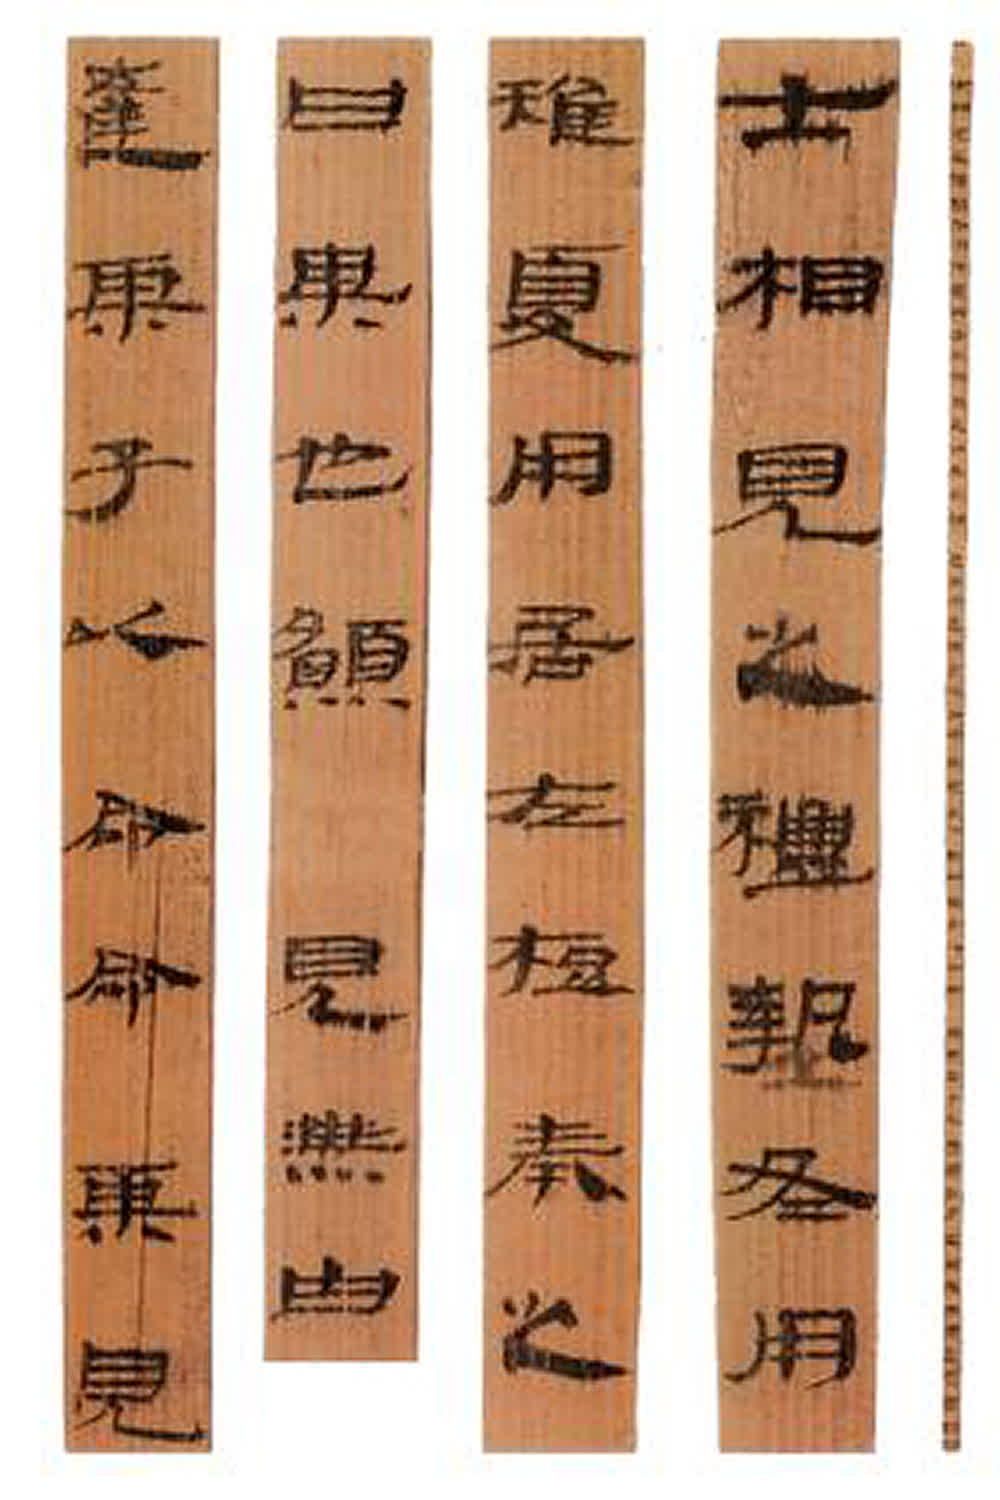 士相見之禮摯冬用
雉夏用居左梪奉之
曰某也願見無由
達某子以命命某見